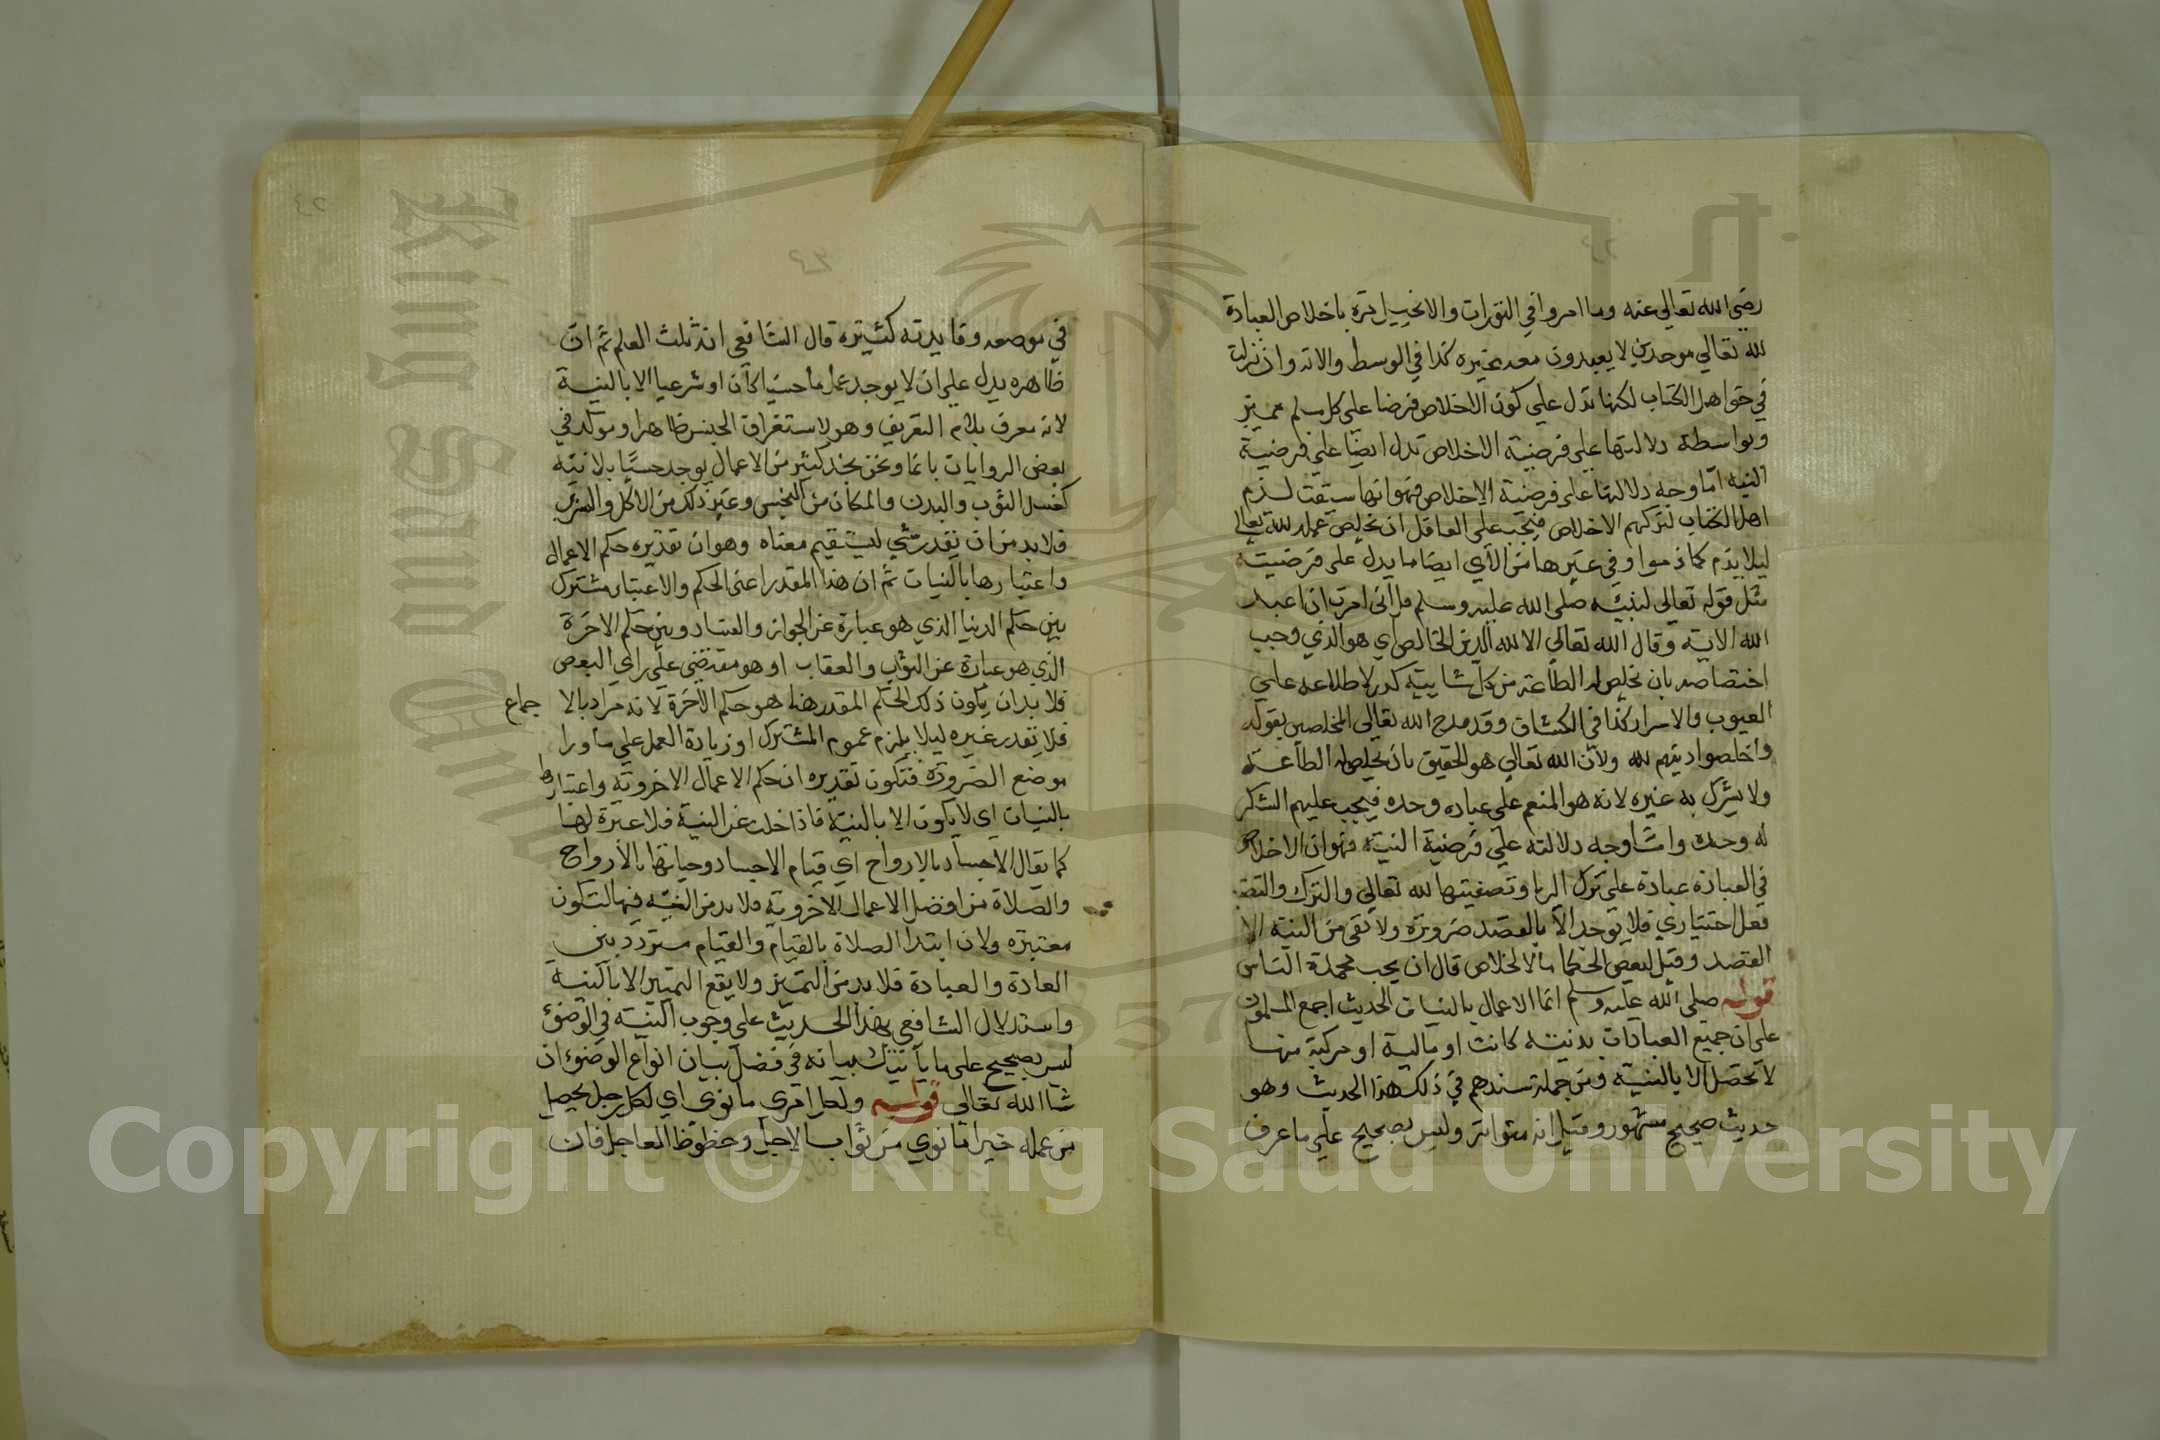 رضي الله تعالى عنه وما امروا في التورات والانجيل مرة باخلاص العبادة
لله تعالي موحدين لا يعبدون معه غيره كذا في الوسط والاته وان نزلت
في حق اهل الكتاب لكنها تدل علي كون الاخلاص فرضا علي كل مسلم مميز
وبواسطة دلالتها علي فرضية الاخلاص تدل ايضا علي فرضية
النيه اما وجه دلالتها على فرضية الاخلاص فهو انها سيقت لذم
اهل الكتاب لتركهم الاخلاص فيجب على العاقل ان يخلص عمله لله تعالي
ليلا يذم كما ذموا وفي غيرها من الآي ايضا ما يدل على فرضيته
مثل قوله تعالي لنبيه صلى الله عليه وسلم قل اني امرت ان اعبد
الله الايته وقال الله تعالي الا لله الدين الخالص اي هو الذي وجب
اختصاصه بان يخلص له الطاعة من كل شايبة كدر لاطلاعه علي
الغيوب والاسرار كذا في الكشاف وقد مدح الله تعالى المخلصين بقوله
واخلصوا دينهم لله ولان الله تعالي هو الحقيق بان يخلص له الطاعة
ولا يشرك به غيره لانه هو المنعم علي عباده وحده فيجب عليهم الشكر
له وحده واما وجه دلالته علي فرضية النية فهو ان الاخلاص
في العبادة عبادة علي ترك الريا وتصفيتها لله تعالي والترك والتصـ
فعل اختياري فلا يوجد الا بالقصد ضرورة ولا نعني من النية الا
القصد وقيل لبعض الحكما ما الاخلاص قال ان يجب محمدة الناس
قوله صلى الله عليه وسلم انما الاعمال بالنيات الحديث اجمع المسلمون
على ان جميع العبادات بدنية كانت او مالية او مركبة منها
لا تحصل الا بالنية ومن جملة سندهم في ذلك هذا الحديث وهو
حديث صحيح مشهور وقيل انه متواتر وليس بصحيح علي ما عرف
في موضعه وفايدته كثيرة قال الشافعي انه ثلث العلم ثم ان
ظاهره يدل علي ان لا يوجد عمل ما حسيا كان او شرعيا الا بالنية
لانه معرف بلام التعريف وهو لاستغراق الجنس ظاهرا وموكد في
بعض الروايات بانما ونحن نجد كثير من الاعمال يوجد حسيا بلا نية
كغسل الثوب والبدن والمكان من النجس وغير ذلك من الاكل والشرب
فلا بد من ان يقدر شي ليستقيم معناه وهو ان تقديره حكم الاعمال
واعتبارها بالنيات ثم ان هذا المقدر اعني الحكم والاعتبار مشترك
بين حكم الدنيا الذي هو عبارة عن الجواز والفساد وبين حكم الاخرة
الذي هو عبارة عن الثواب والعقاب او هو مقتضي علي راي البعض
فلا بد ان يكون ذلك الحكم المقدر هنا هو حكم الآخرة لانه مراد بالا جماع
فلا يقدر غيره ليلا يلزم عموم المشترك او زيادة العمل علي ما ورا
موضع الضرورة فتكون تقديره ان حكم الاعمال الاخروية واعتبارها
بالنيات اي لا يكون الا بالنية فاذا خلت عن النية فلا عبرة لها
كما يقال الاجساد بالارواح اي قيام الاجساد وحياتها بالارواح
والصلاة من افضل الاعمال الاخروية فلا بد من النيه فيها لتكون
معتبرة ولان ابتدا الصلاة بالقيام والقيام متردد بين
العادة والعبادة فلا بد من التميز ولا يقع التميز الا بالنية
واستدلال الشافعي بهذا الحديث علي وجوب النية في الوضوء
ليس بصحيح على ما يأتيك بيانه في فصل بيان انواع الوضوء ان
شا الله تعالي قوله ولكل امري ما نوي اي لكل رجل يحصل
من عمله خير ما نوي من ثواب الاجل وحظوظ العاجل فان
Copyright © King Saud University